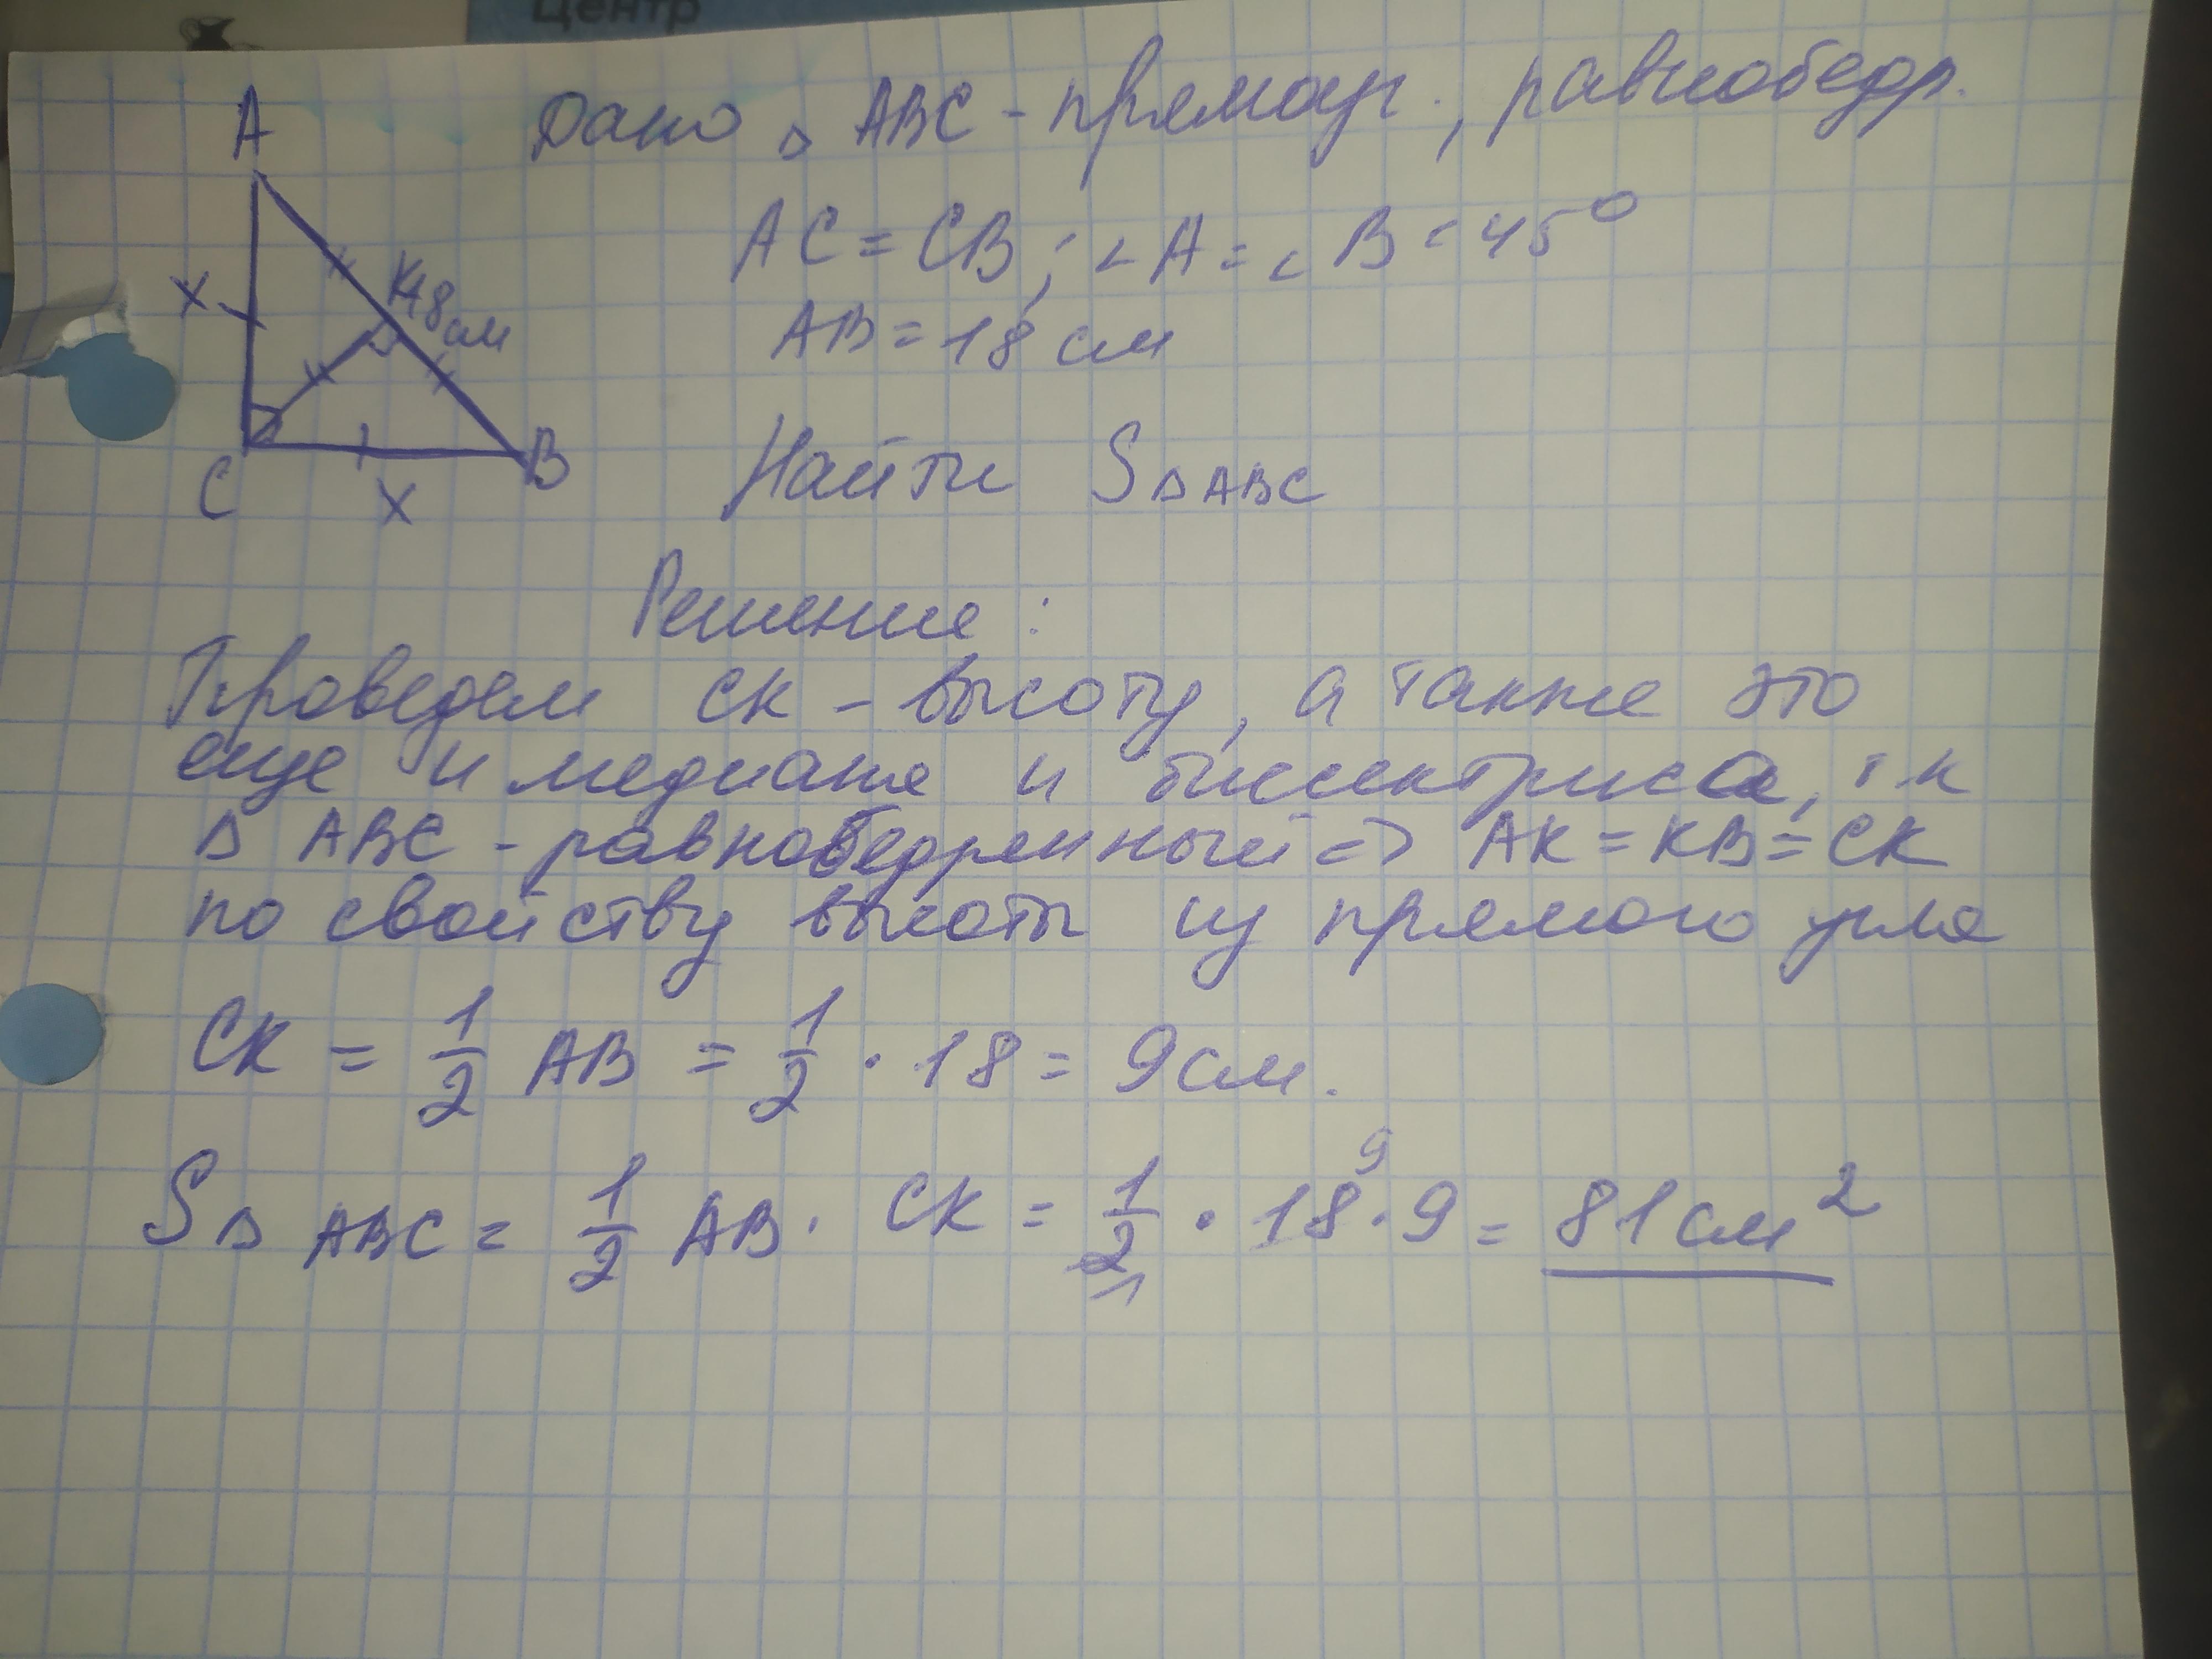 Центр
Дано △ ABC - прямоуг., равнобедр.
AC = CB; ∠A = ∠B = 45°
AB = 18 см
Найти S△ABC
A
x
K
18 см
C
B
x
Решение:
Проведем CK - высоту, а также это
еще и медиана и биссектриса, т к
△ ABC - равнобедренный => AK = KB = CK
по свойству высоты из прямого угла
CK = 1/2 AB = 1/2 · 18 = 9 см.
S△ ABC = 1/2 AB · CK = 1/2 · 18 · 9 = 81 см²
9
1